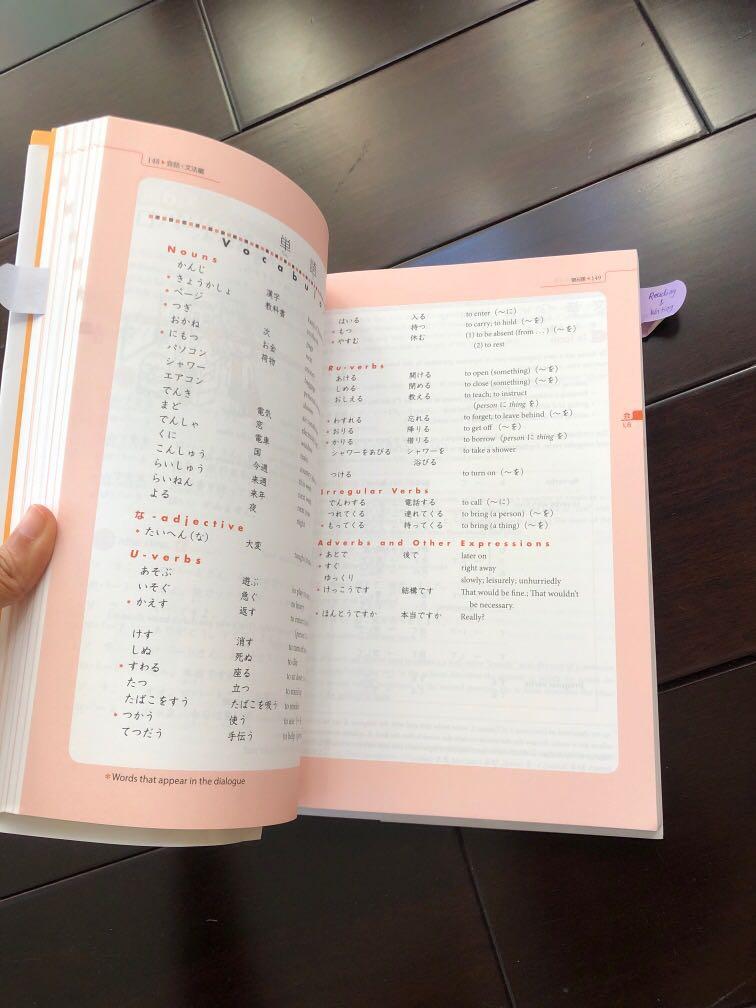 148▶会話・文法編
単語
Nouns
かんじ 漢字
* きょうかしょ 教科書
* ページ
* つぎ 次
おかね お金
* にもつ 荷物
パソコン
シャワー
エアコン
でんき 電気
まど 窓
でんしゃ 電車
くに 国
こんしゅう 今週
らいしゅう 来週
らいねん 来年
よる 夜 night
な-adjective
* たいへん(な) 大変
U-verbs
あそぶ 遊ぶ
いそぐ 急ぐ
* かえす 返す
けす 消す
しぬ 死ぬ to die
* すわる 座る
たつ 立つ
たばこをすう たばこを吸う
* つかう 使う
てつだう 手伝う
*Words that appear in the dialogue
第6課◀149
はいる 入る to enter (〜に)
* もつ 持つ to carry; to hold (〜を)
* やすむ 休む (1) to be absent (from . . .) (〜を)
(2) to rest
Ru-verbs
あける 開ける to open (something) (〜を)
しめる 閉める to close (something) (〜を)
おしえる 教える to teach; to instruct
(person に thing を)
* わすれる 忘れる to forget; to leave behind (〜を)
* おりる 降りる to get off (〜を)
* かりる 借りる to borrow (person に thing を)
シャワーをあびる シャワーを to take a shower
浴びる
つける to turn on (〜を)
Irregular Verbs
でんわする 電話する to call (〜に)
つれてくる 連れてくる to bring (a person) (〜を)
* もってくる 持ってくる to bring (a thing) (〜を)
Adverbs and Other Expressions
* あとで 後で later on
* すぐ right away
ゆっくり slowly; leisurely; unhurriedly
* けっこうです 結構です That would be fine.; That wouldn't
be necessary.
* ほんとうですか 本当ですか Really?
会
L6
Reading
&
Writing